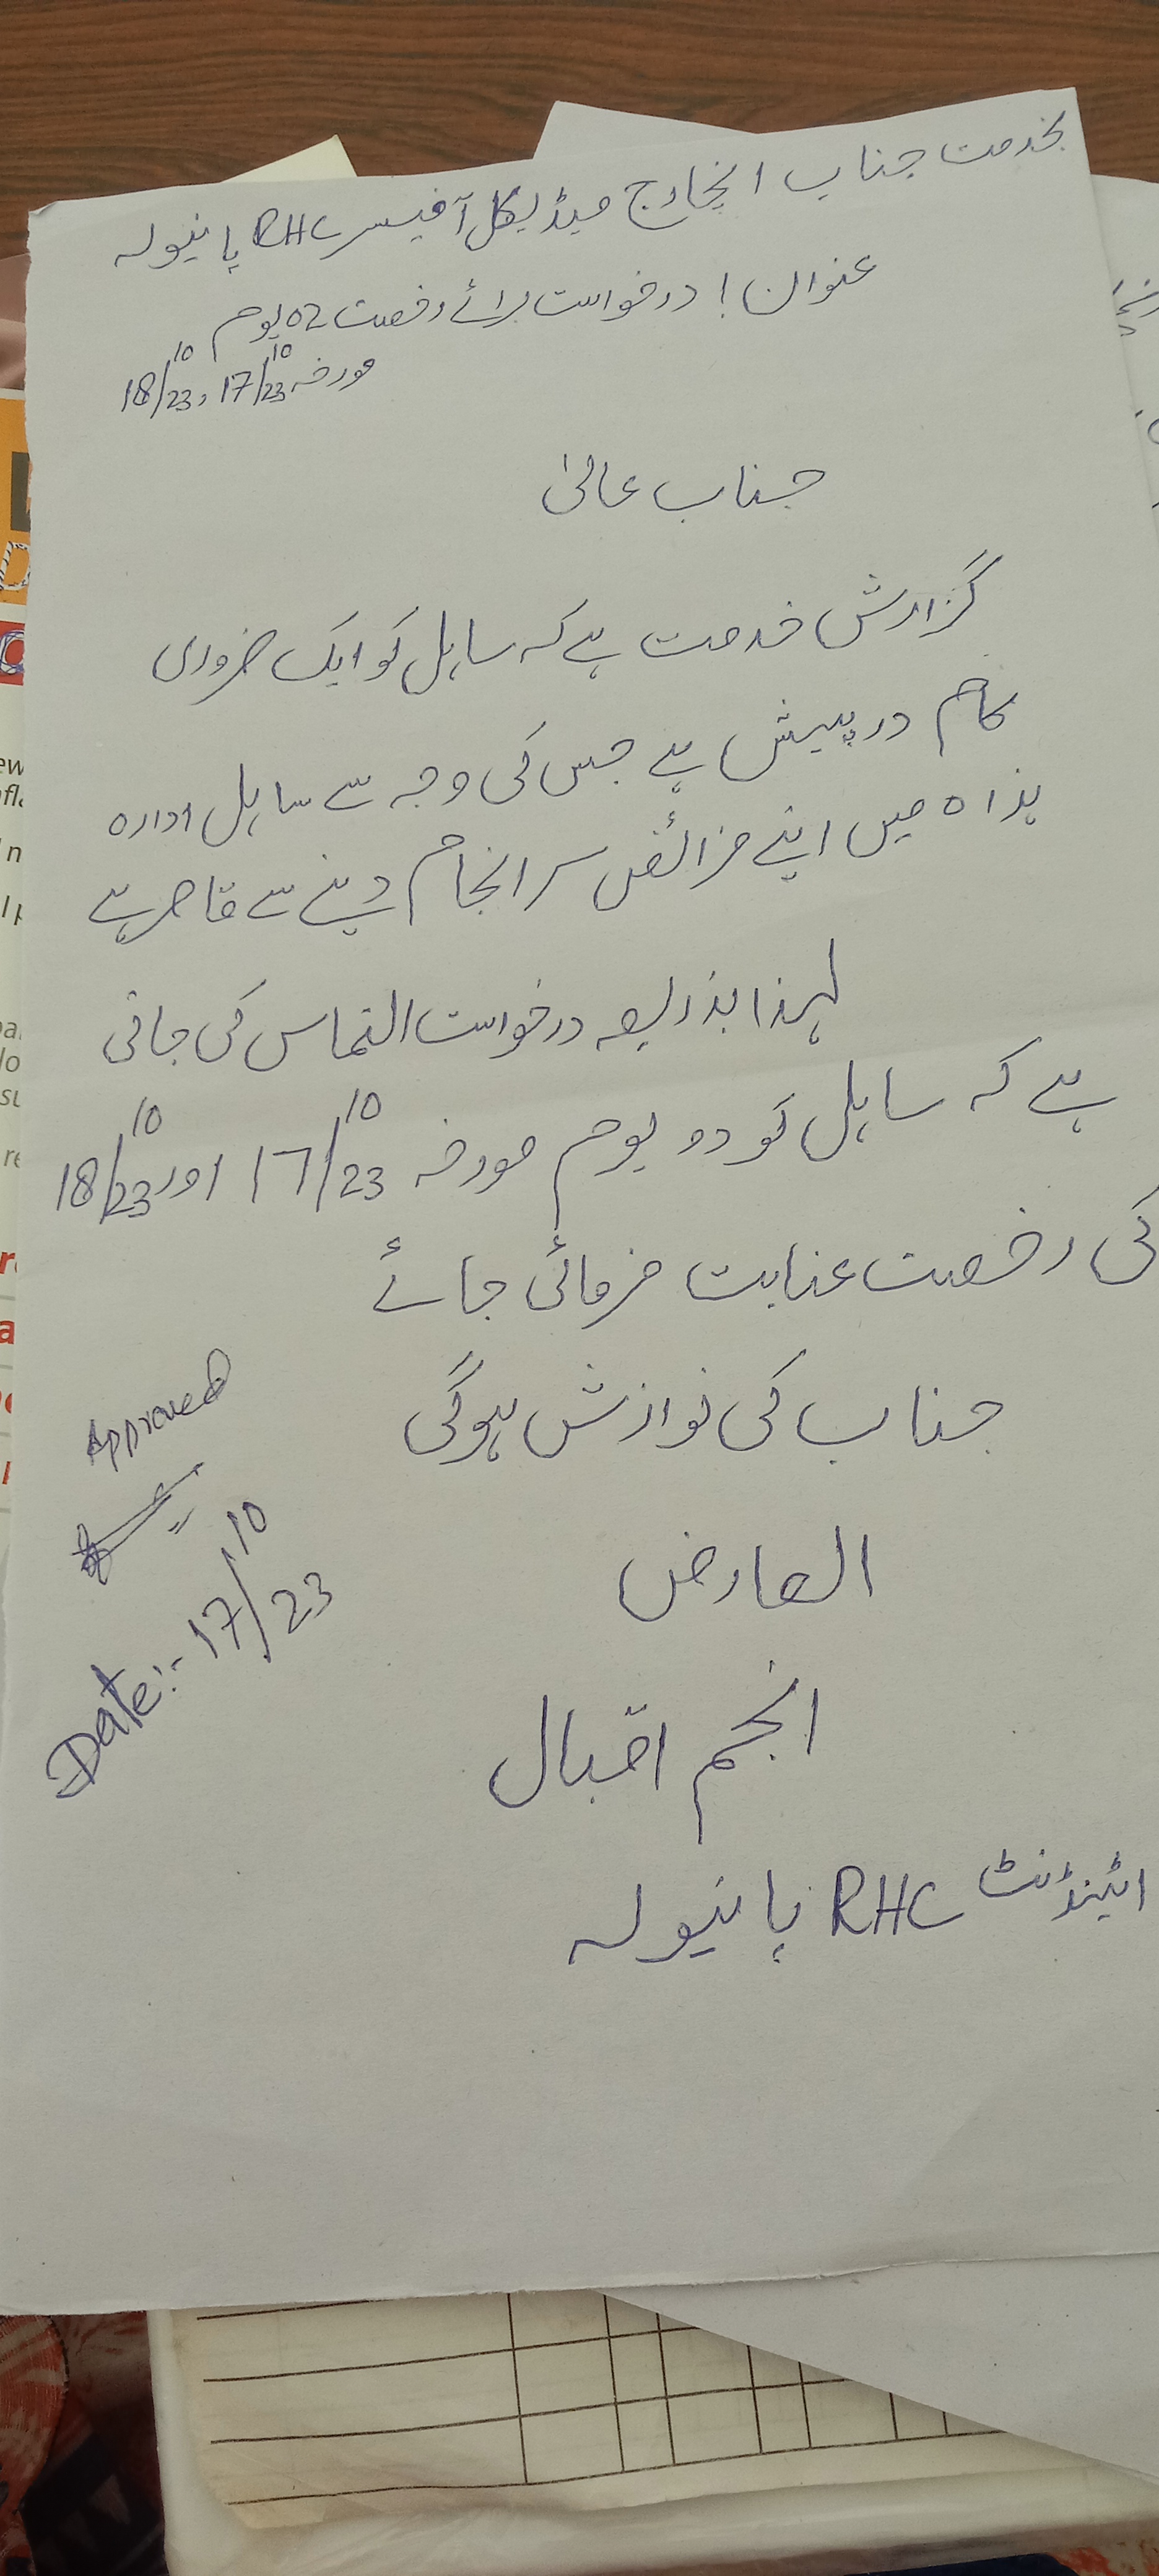 بخدمت جناب انچارج میڈیکل آفیسر RHC پانیولہ
عنوان ! درخواست برائے رخصت 02 یوم
مورخہ 17/10/23 ، 18/10/23
جناب عالیٰ
گزارش خدمت ہے کہ سایٔل کو ایک ضروری
کام درپیش ہے جس کی وجہ سے سایٔل ادارہ
ہذاہ میں اپنے فرائض سر انجام دینے سے قاصر ہے
لہذا بذریعہ درخواست التماس کی جاتی
ہے کہ سایٔل کو دو یوم مورخہ 17/10/23 اور 18/10/23
کی رخصت عنایت فرمائی جائے
جناب کی نوازش ہوگی
العارض
انجم اقبال
اٹینڈنٹ RHC پانیولہ
Approved
Date:- 17/10/23